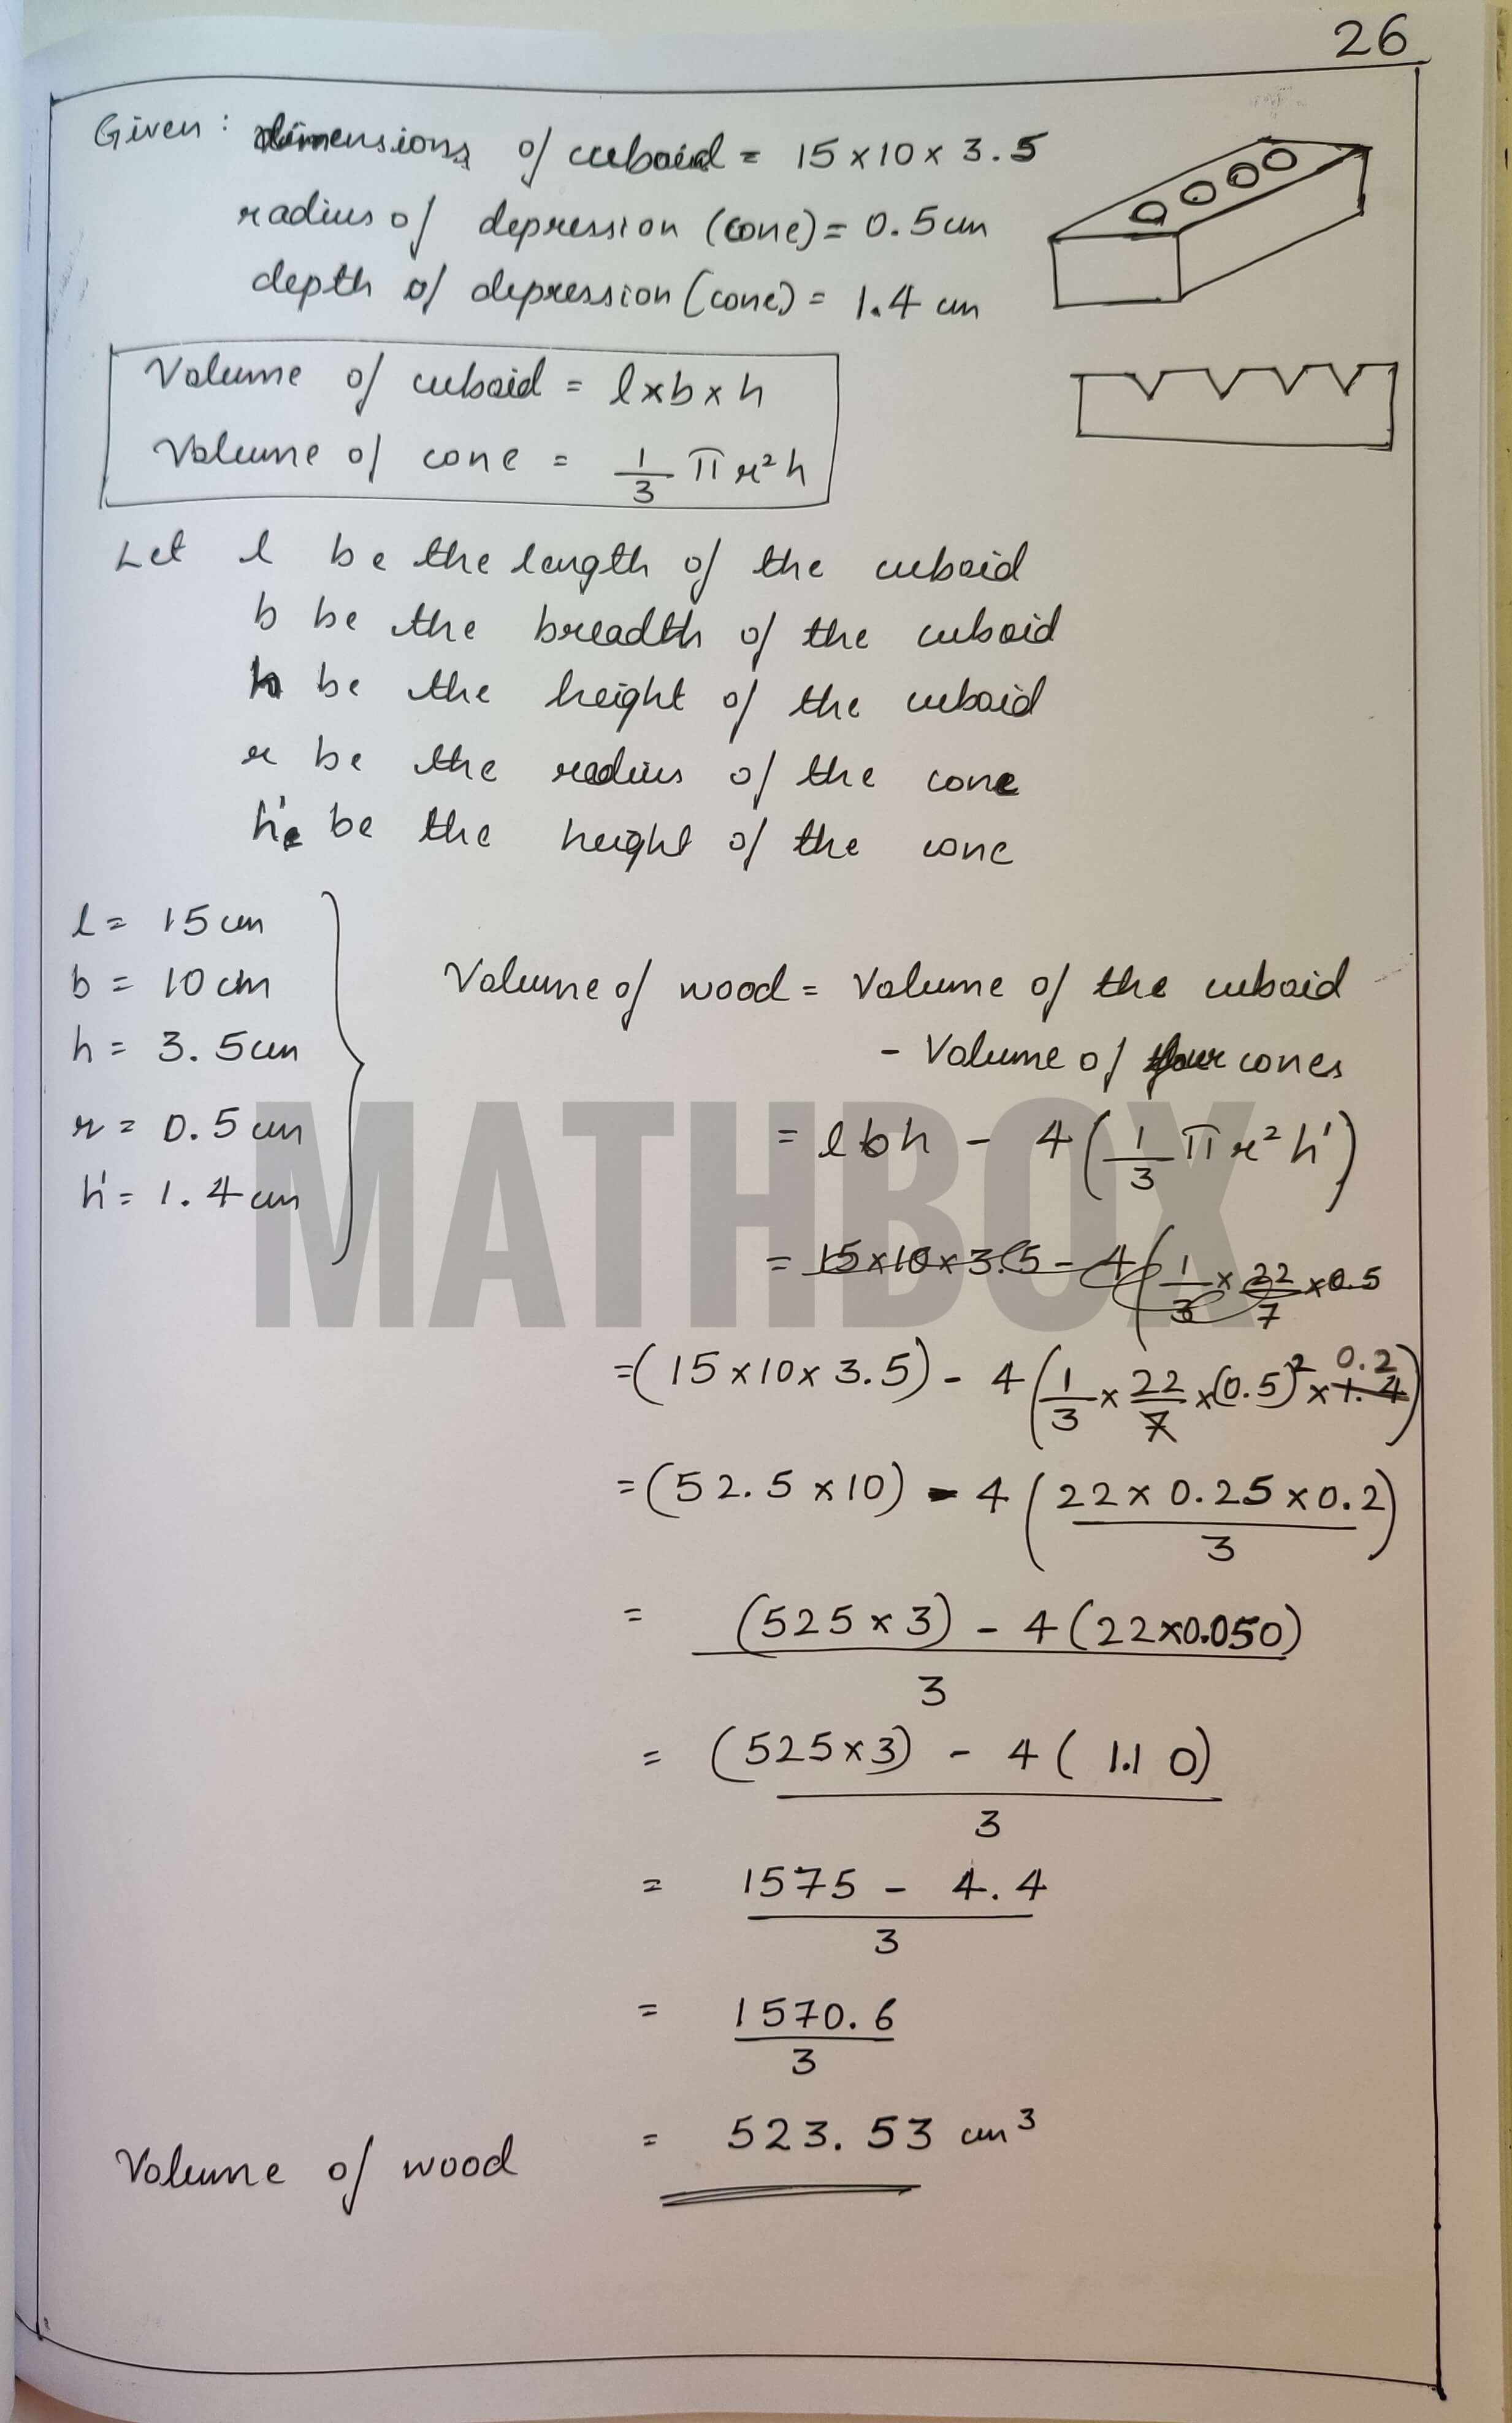 26
Given: dimensions of cuboid = 15 × 10 × 3.5
radius of depression (cone) = 0.5 cm
depth of depression (cone) = 1.4 cm
Volume of cuboid = l × b × h
Volume of cone = 1/3 π r² h
Let l be the length of the cuboid
b be the breadth of the cuboid
h be the height of the cuboid
r be the radius of the cone
h' be the height of the cone
l = 15 cm
b = 10 cm
h = 3.5 cm
r = 0.5 cm
h' = 1.4 cm
Volume of wood = Volume of the cuboid
- Volume of four cones
= lbh - 4 (1/3 π r² h')
= 15 × 10 × 3.5 - 4 (1/3 × 22/7 × 0.5
= (15 × 10 × 3.5) - 4 (1/3 × 22/7 × (0.5)² × 1.4) 0.2
= (52.5 × 10) - 4 (22 × 0.25 × 0.2 / 3)
= (525 × 3) - 4 (22 × 0.050) / 3
= (525 × 3) - 4 (1.10) / 3
= 1575 - 4.4 / 3
= 1570.6 / 3
Volume of wood = 523.53 cm³
MATHBOX